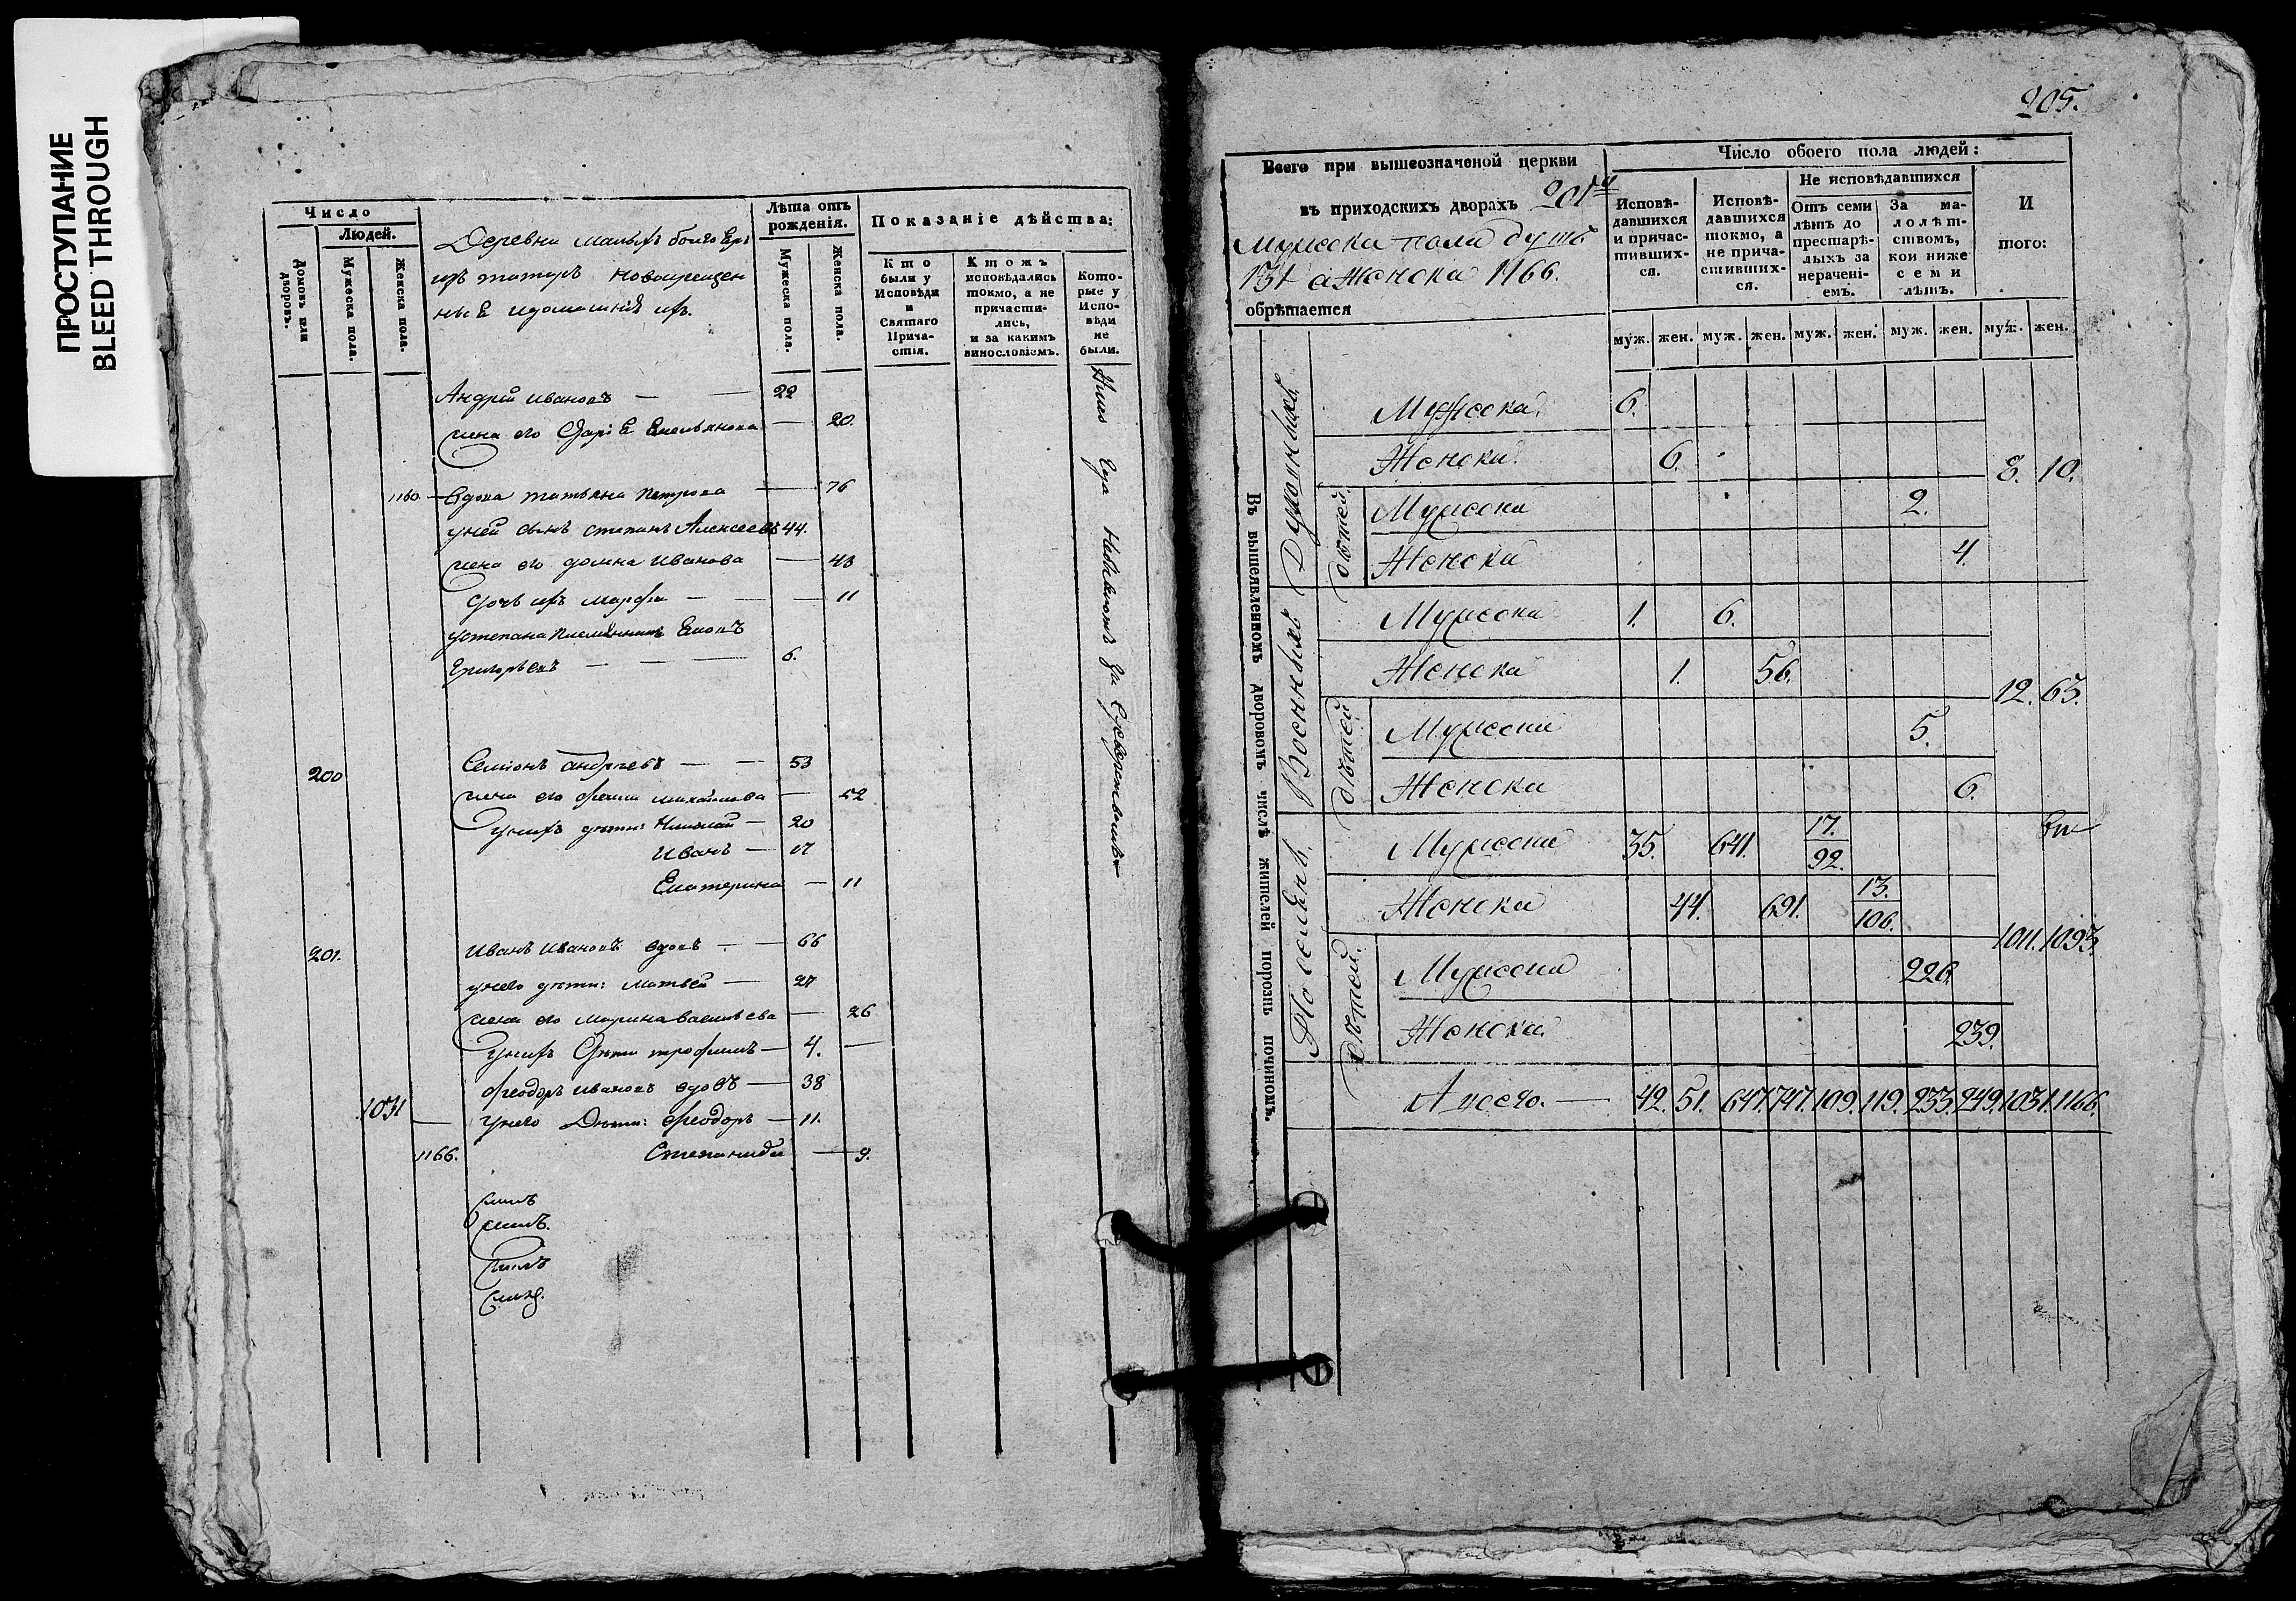 ПРОСТУПАНИЕ
BLEED THROUGH
Число
Людей.
Домовъ или дворовъ.
Мужеска пола.
Женска пола.
Деревни малыхъ
изъ татаръ новокрещен
ные и домашніе ихъ.
Лѣта отъ рожденія.
Мужеска пола.
Женска пола.
Показаніе дѣйства:
Кто были у Исповѣди и Святаго Прича-стія.
Ктожъ исповѣдались токмо, а не причасти-лись, и за какимъ винословіемъ.
Кото-рые у Испо-вѣди не были.
Андрей Ивановъ — 22
жена его Дарiя Емельянова — 20.
1160 — Вдова татьяна Петрова — 76
у ней сынъ степанъ Алексеевъ 44.
жена его домна Иванова — 43
дочь ихъ марфа — 11
у степана племянникъ
Григорьевъ — 6.
200 Семіонъ андреевъ — 53
жена его михайлова — 52
у нихъ дети: Николай — 20
Иванъ — 17
Екатерина — 11
201. Иванъ Ивановъ вдовъ — 66
у него дети: Матвей — 27
жена его Марина васильева — 26
у нихъ дети трофимъ — 4.
1031 Феодоръ Ивановъ вдовъ — 38
у него Дети: Феодоръ — 11.
1166. Степанида — 9.
205.
Всего при вышеозначеной церкви
въ приходскихъ дворахъ 201
мужеска пола душъ
1031 а Женска 1166.
обрѣтается
Число обоего пола людей:
Исповѣ-давшихся и причас-тившихся.
Исповѣ-давшихся токмо, а не прича-стивших-ся.
Не исповѣдавшихся
Отъ семи лѣтъ до престарѣ-лыхъ за нерачені-емъ.
За ма-лолѣт-ствомъ, кои ниже семи лѣтъ.
И того:
муж. жен. муж. жен. муж. жен. муж. жен. муж. жен.
Въ вышеявленномъ дворовомъ числѣ жителей порознь починомъ.
Духовныхъ
Мужеска 6.
Женска 6. 8. 10.
детей
Мужеска 2.
Женска 4.
Военныхъ
Мужеска 1. 6.
Женска 1. 56. 12. 63.
детей
Мужеска 5.
Женска 6.
Поселянъ
Мужеска 35. 641. 17. 92.
Женска 44. 691. 13. 106. 1011. 1093.
детей
Мужеска 226.
Женска 239.
А всего. — 42. 51. 647. 747. 109. 119. 233. 249. 1031. 1166.